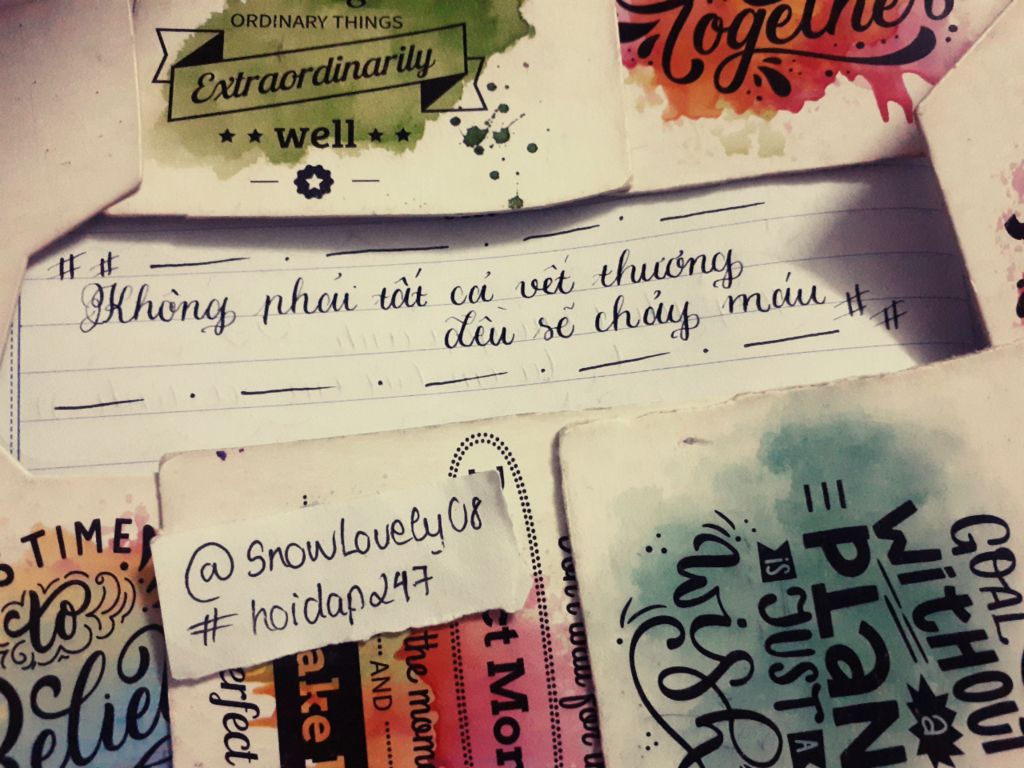 ORDINARY THINGS
Extraordinarily
well
Together
# #
Không phải tất cả vết thương
đều sẽ chảy máu # #
@SnowLovely08
#hoidap247
TIME
to
perfect
ake
AND
the mom
ct Mor
GOAL
WITHOUT
a
PLAN
IS JUST A
wish